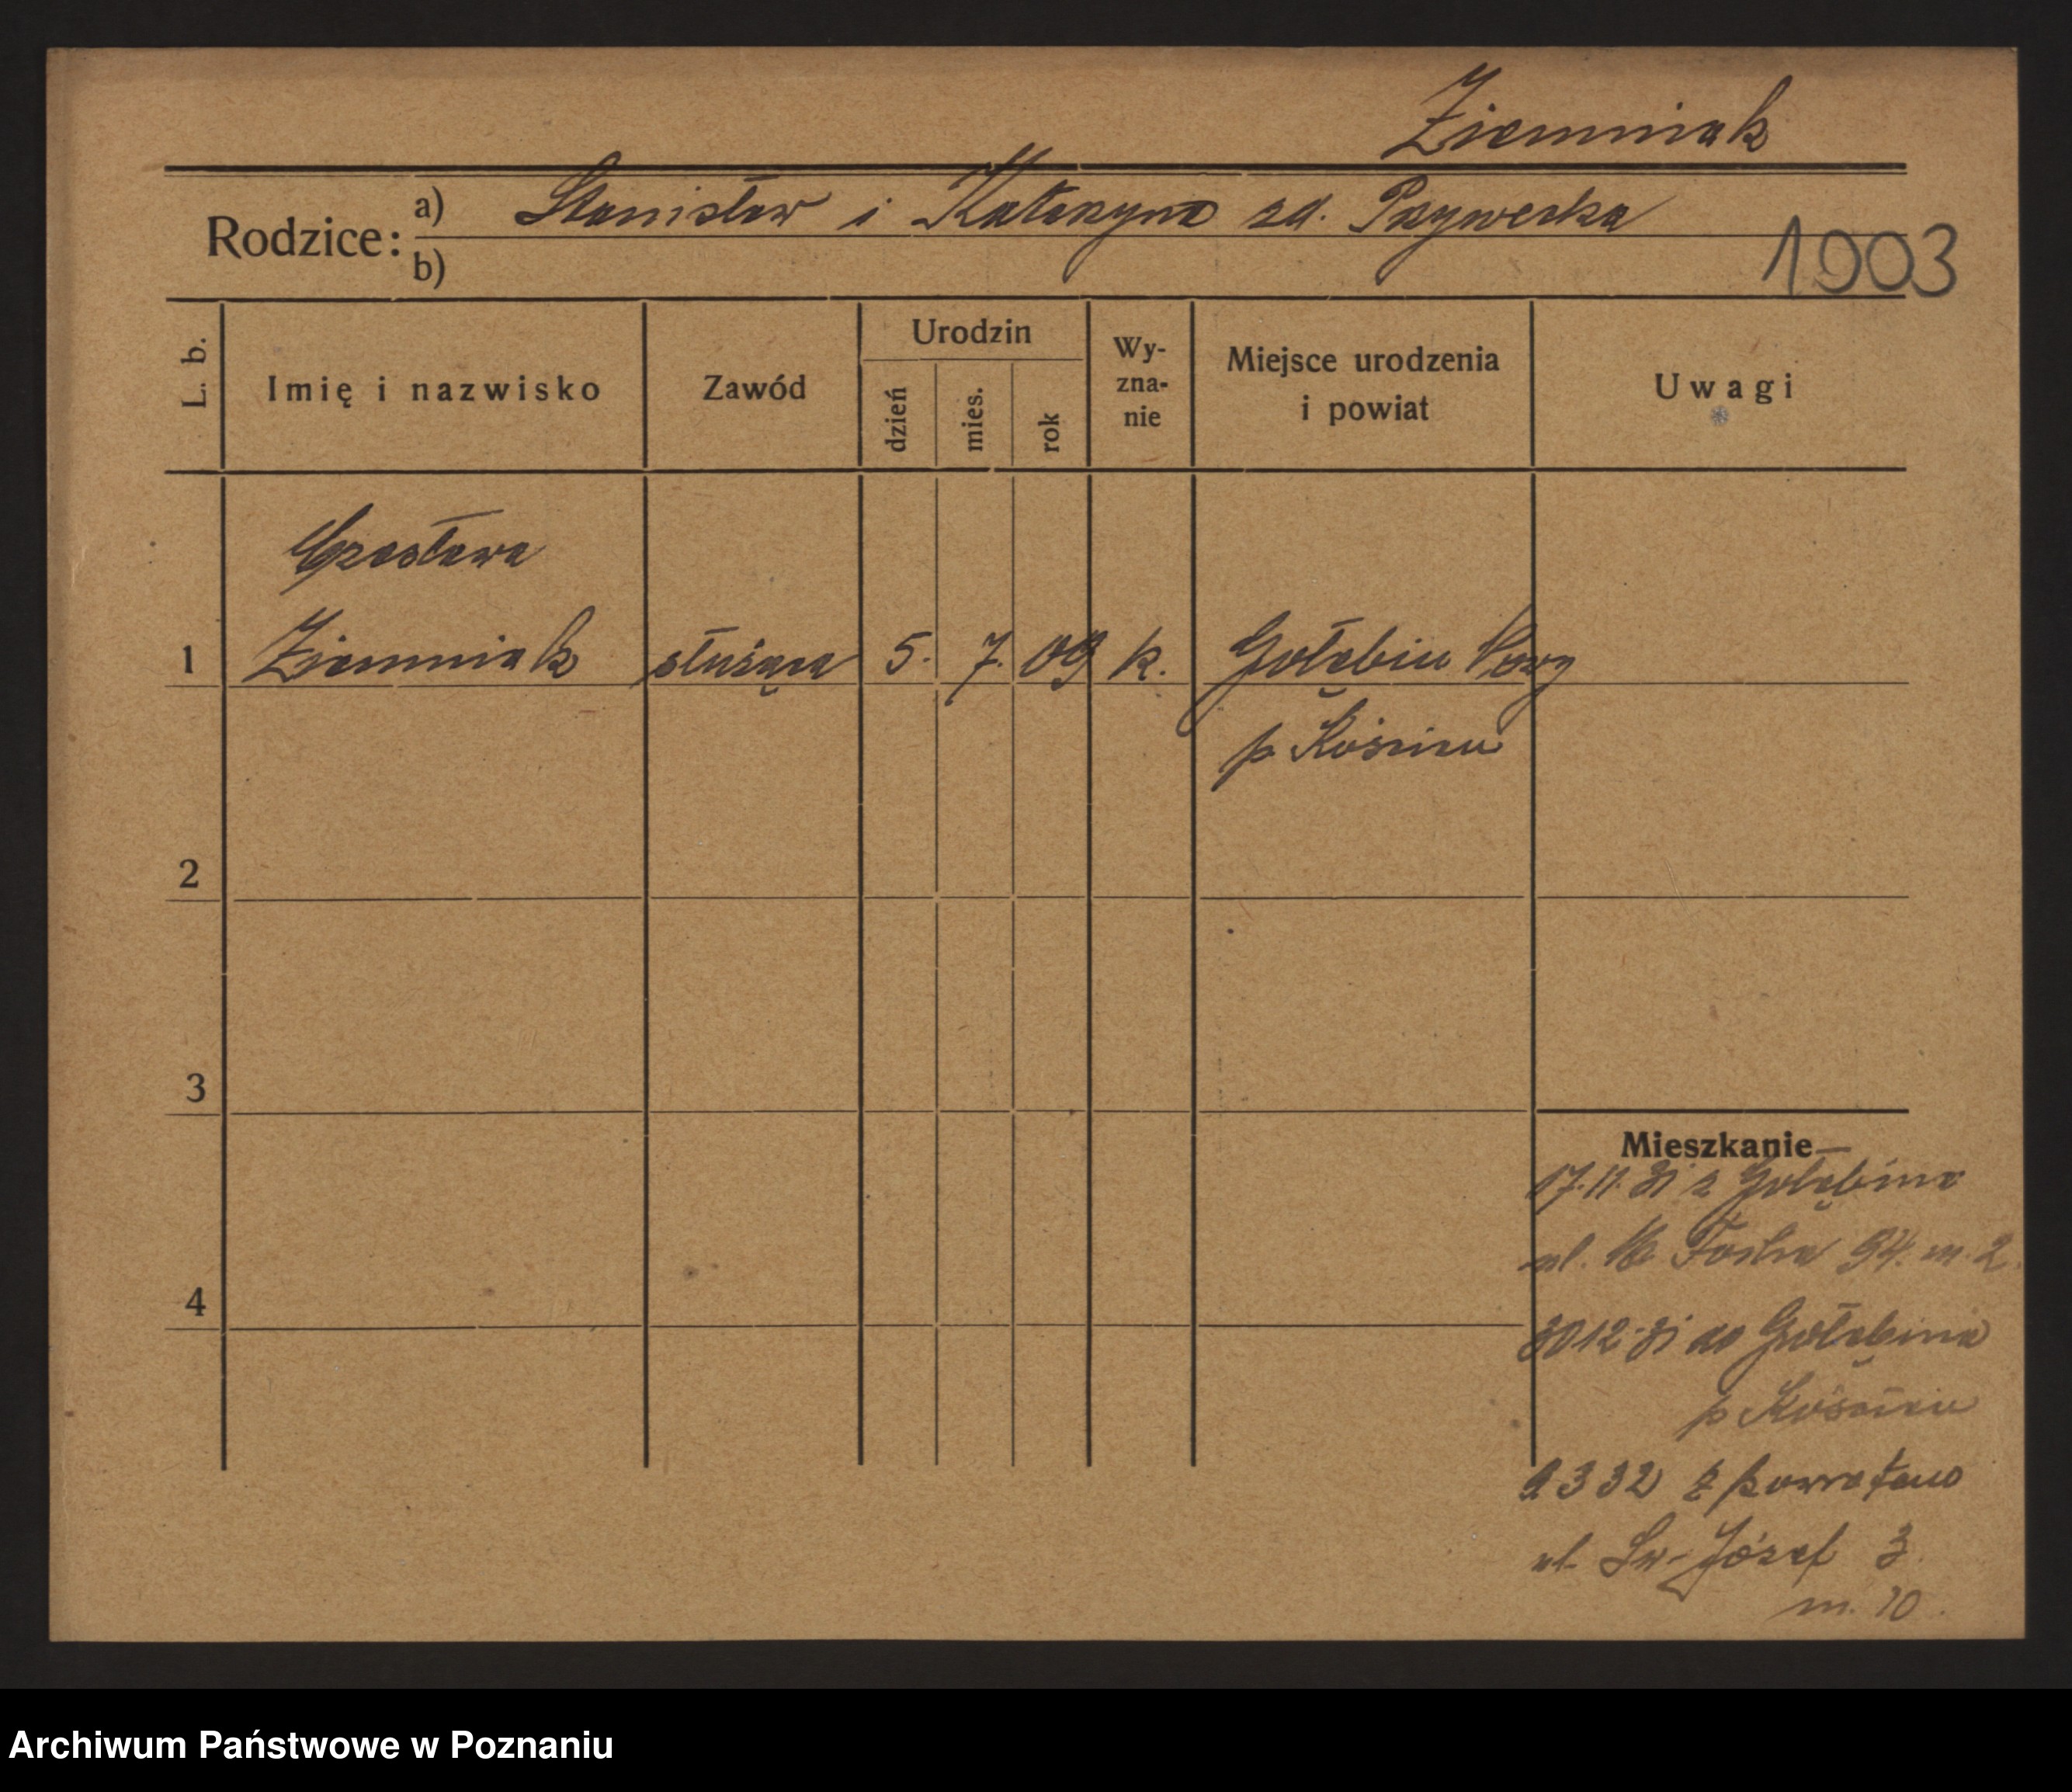 Ziemniak
Rodzice: a) Stanisław i Katarzyna zd. Przywecka
b)
1903
L. b.
Imię i nazwisko
Zawód
Urodzin
dzień
mies.
rok
Wy-
zna-
nie
Miejsce urodzenia
i powiat
Uwagi
Czesława
1 Ziemniak służąca 5. 7. 09 k. Gołębin Nowy
p Kościan
2
3
4
Mieszkanie
17.11.31 z Gołębina
ul. M. Focha 94. m. 2.
30 12 31 do Gołębina
p Kościan
9 3 32 z powrotem
ul. Św. Józef 3
m. 10.
Archiwum Państwowe w Poznaniu